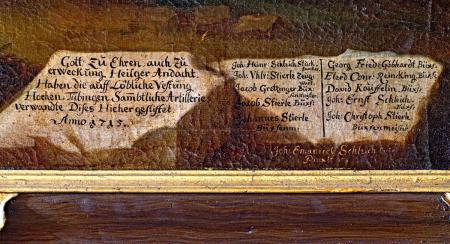 Gott Zu Ehren, auch Zu
erweckung, Heilger Andacht,
Haben die auff Löbliche Vestung
Hochen Tübingen Sambtliche Artillerie
verwandte Dises Hieher gestifftet.
Anno 1715.
Joh: Heinr:
Joh: Vhlr: Stierle Zeug
wart
Jacob Gretzinger Büxs:
Jacob Stierle Büxs:
Johannes Stierle
Büxsenm:
Georg Frid: Gebhardt Büxs:
Eberd Conr: Remcking Büxs:
David Käuffelin, Büxs:
Joh: Ernst Schleich
Büxs:
Joh: Christoph Stierle
Büxsenmeister
Joh: Emanuel
Pinxit